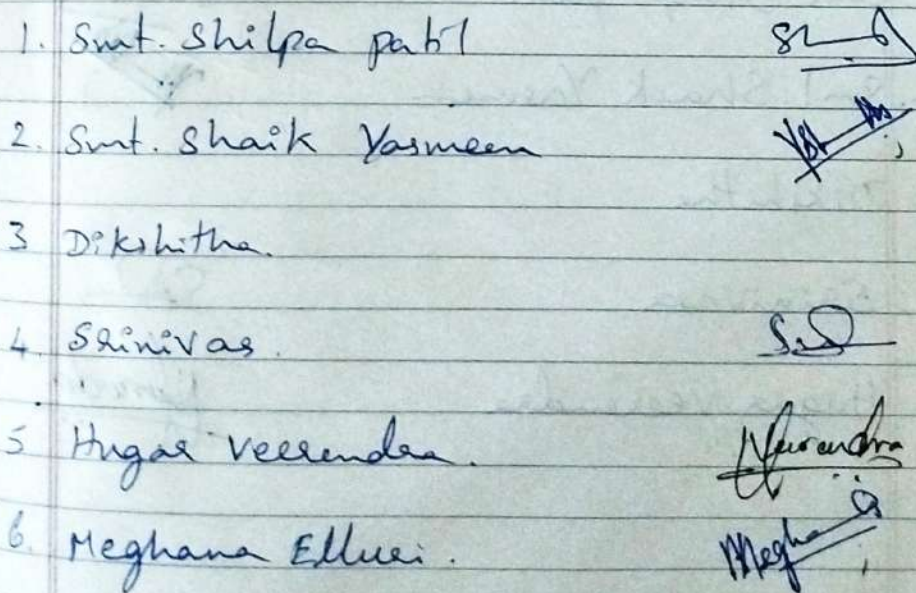 1. Smt. Shilpa patil
2. Smt. Shaik Yasmeen
3 Dikshitha.
4. Srinivas.
5 Hugar Veerendra. Veerendra
6. Meghana Elluri. Megha